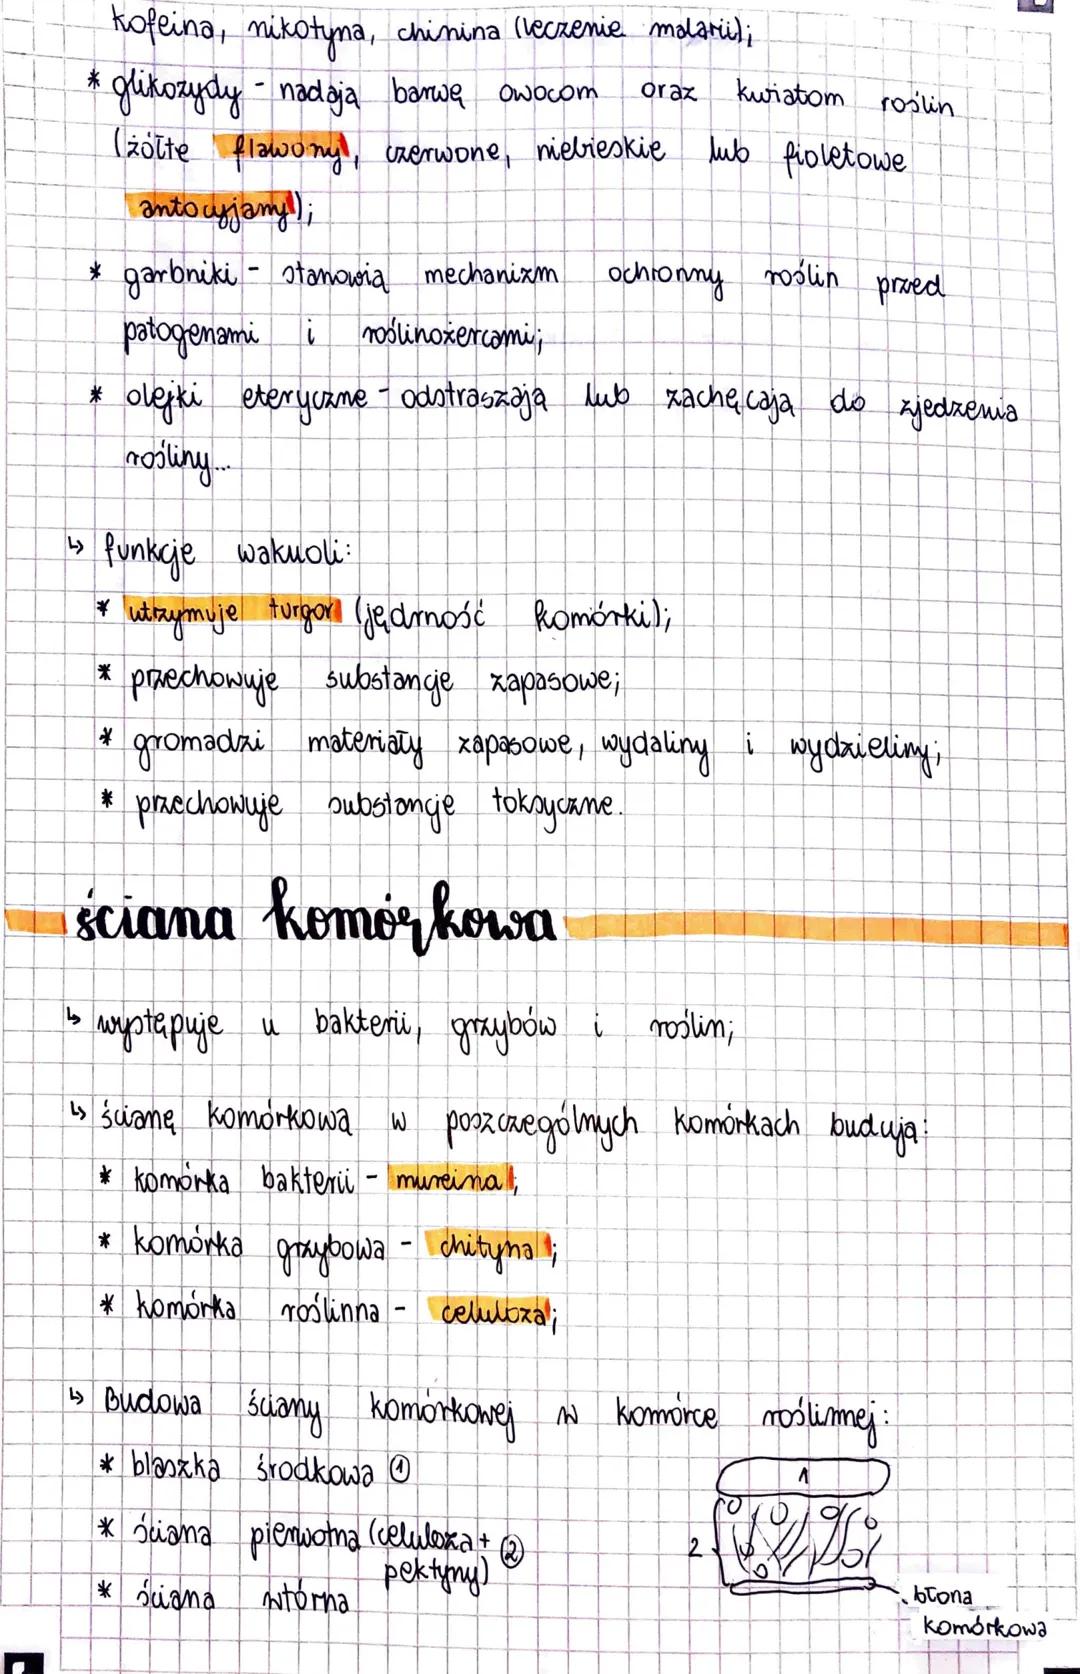 kofeina, nikotyna, chinina (leczenie malarii);
* glikozydy - nadają barwę owocom oraz kwiatom roślin
(żółte flawony, czerwone, niebieskie lub fioletowe
antocyjany);
* garbniki - stanowią mechanizm ochronny roślin przed
patogenami i roślinożercami;
* olejki eteryczne - odstraszają lub zachęcają do zjedzenia
rośliny...
↳ funkcje wakuoli:
* utrzymuje turgor (jędrność komórki);
* przechowuje substancje zapasowe;
* gromadzi materiały zapasowe, wydaliny i wydzieliny;
* przechowuje substancje toksyczne.
ściana komórkowa
↳ występuje u bakterii, grzybów i roślin;
↳ ścianę komórkową w poszczególnych komórkach budują:
* komórka bakterii - mureina;
* komórka grzybowa - chityna;
* komórka roślinna - celuloza;
↳ Budowa ściany komórkowej w komórce roślinnej:
* blaszka środkowa ①
* ściana pierwotna (celuloza + pektyny) ②
* ściana wtórna
1
2
błona
komórkowa